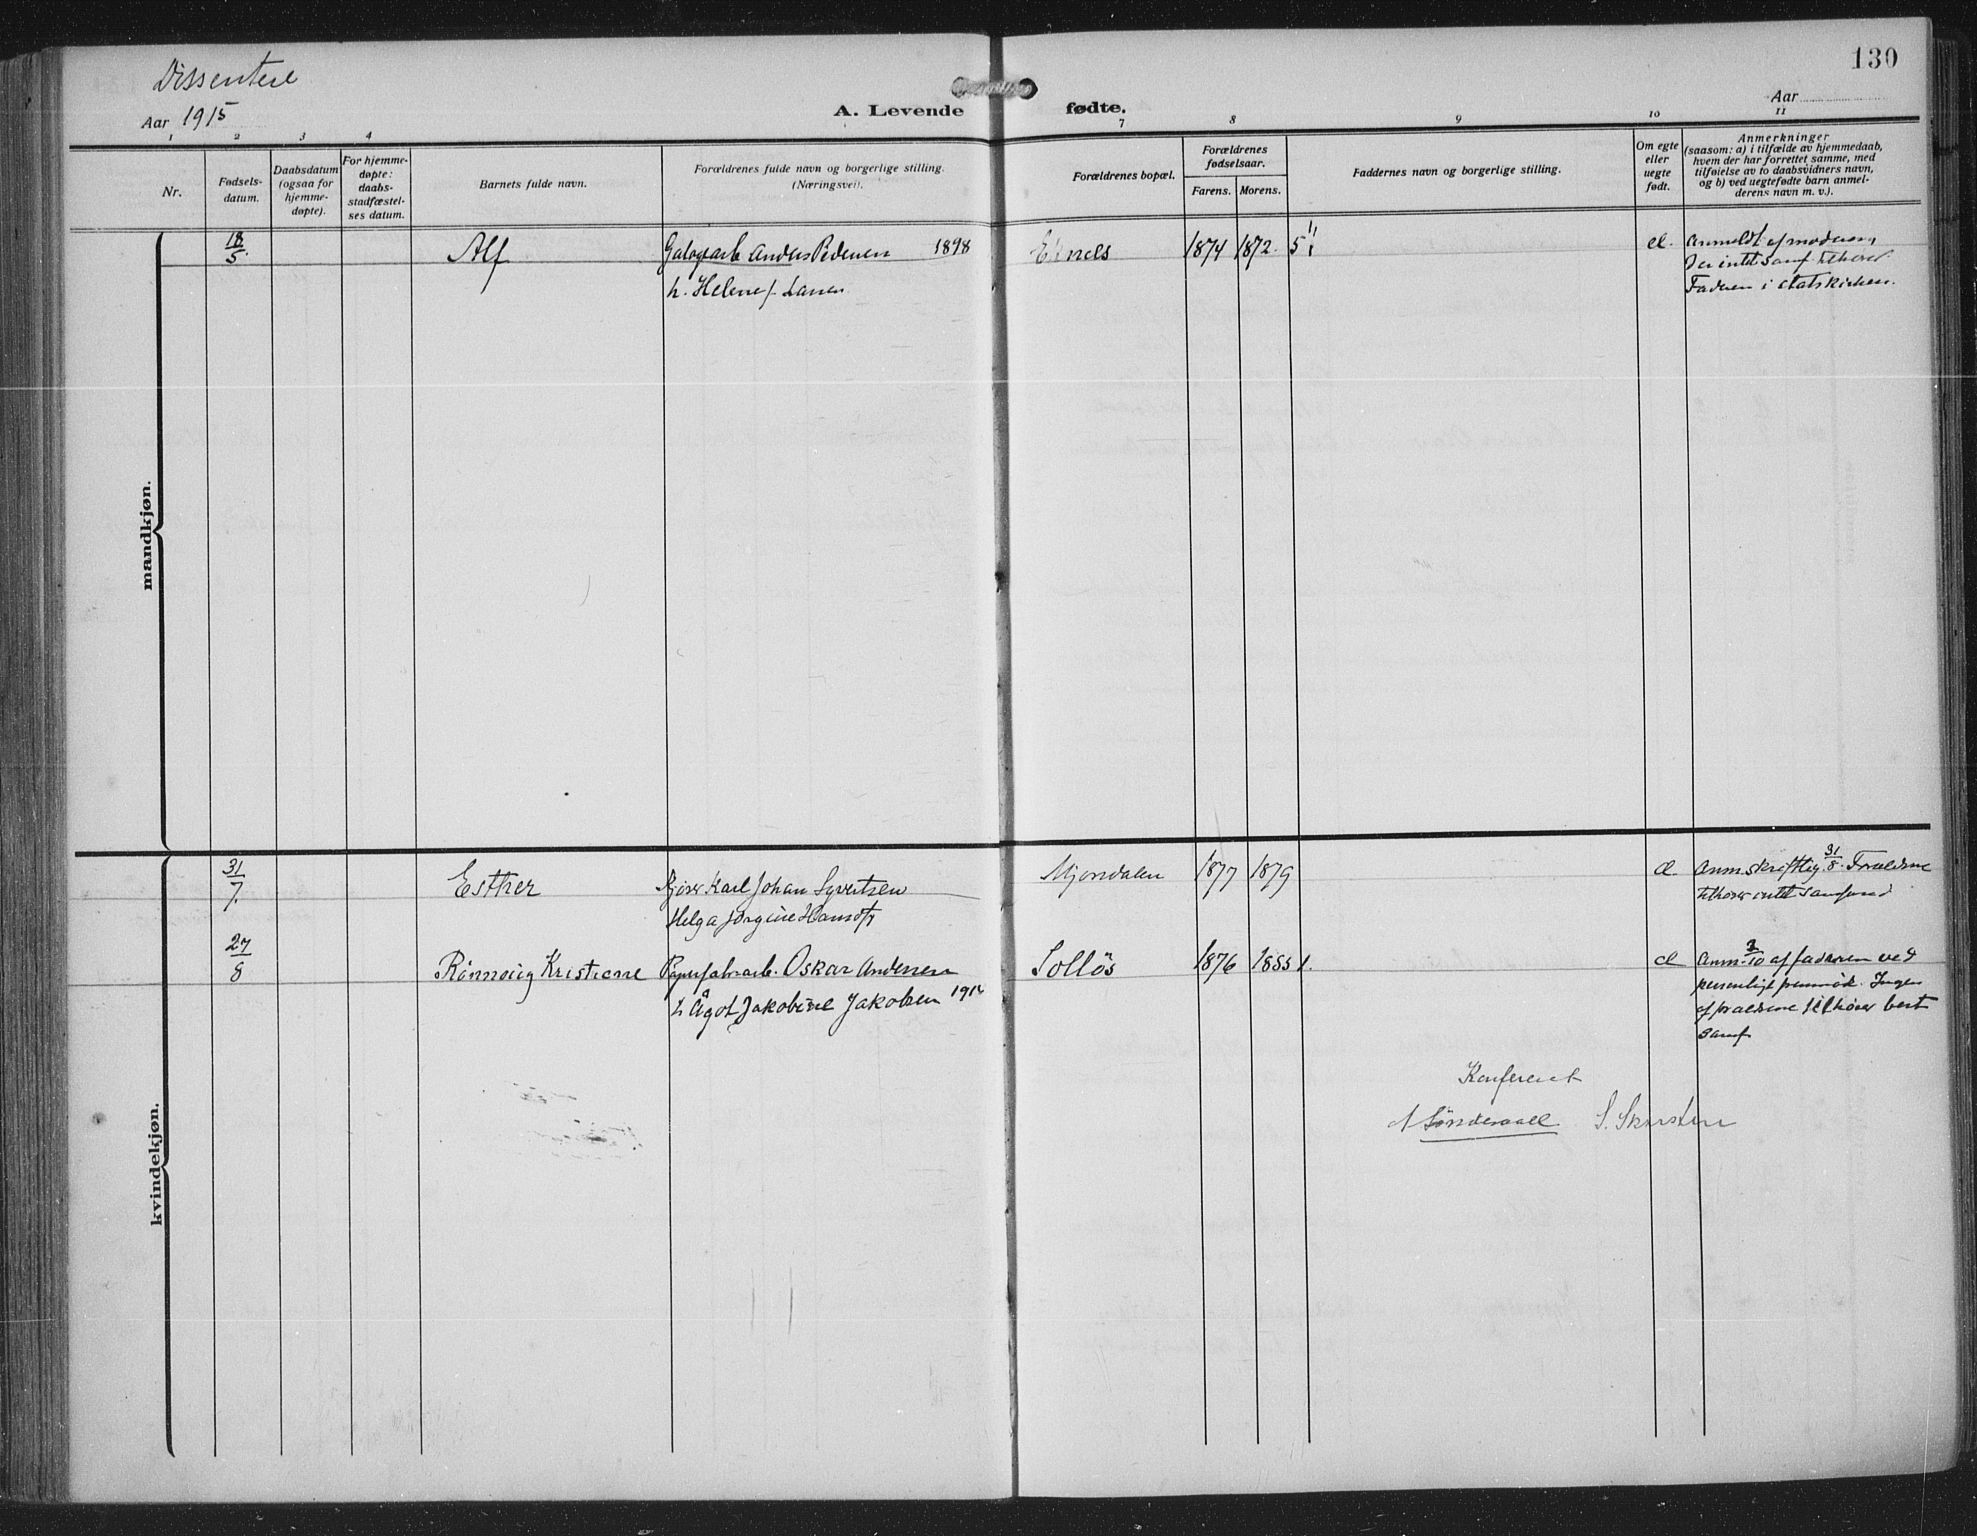 130
Dissentere
Aar 1915
A. Levende fødte.
Aar
1 2 3 4 7 8 9 10 11
Nr.
Fødsels-
datum.
Daabsdatum
(ogsaa for
hjemme-
døpte).
For hjemme-
døpte:
daabs-
stadfæstel-
ses datum.
Barnets fulde navn.
Forældrenes fulde navn og borgerlige stilling.
(Næringsvei).
Forældrenes bopæl.
Forældrenes
fødselsaar.
Farens. Morens.
Faddernes navn og borgerlige stilling.
Om egte
eller
uegte
født.
Anmerkninger
(saasom: a) i tilfælde av hjemmedaab,
hvem der har forrettet samme, med
tilføielse av to daabsvidners navn,
og b) ved uegtefødte barn anmel-
derens navn m. v.).
mandkjøn.
18/5 Alf Anders Pedersen 1898 1874 1872 5
h. Helene f. Larsen
anmeldt af moderen,
Der intet samf. tilhører
Faderen i statskirken.
kvindekjøn.
31/7 Esther Karl Johan Syvertsen Mjøndalen 1877 1879
Helga Jørgine Hansdtr
Anm. skriftlig 31/8. Forældrene
tilhører intet samfund
27/8 Rønnaug Kristiane Papirfabrarb. Oskar Andersen Solløs 1876 1885 1.
h Ågot Jakobine Jakobsen 1914
Anm. 3/10 af faderen ved
personligt fremmøde. Ingen
af forældrene tilhører best
samf
Konfereret
S. Skarsten